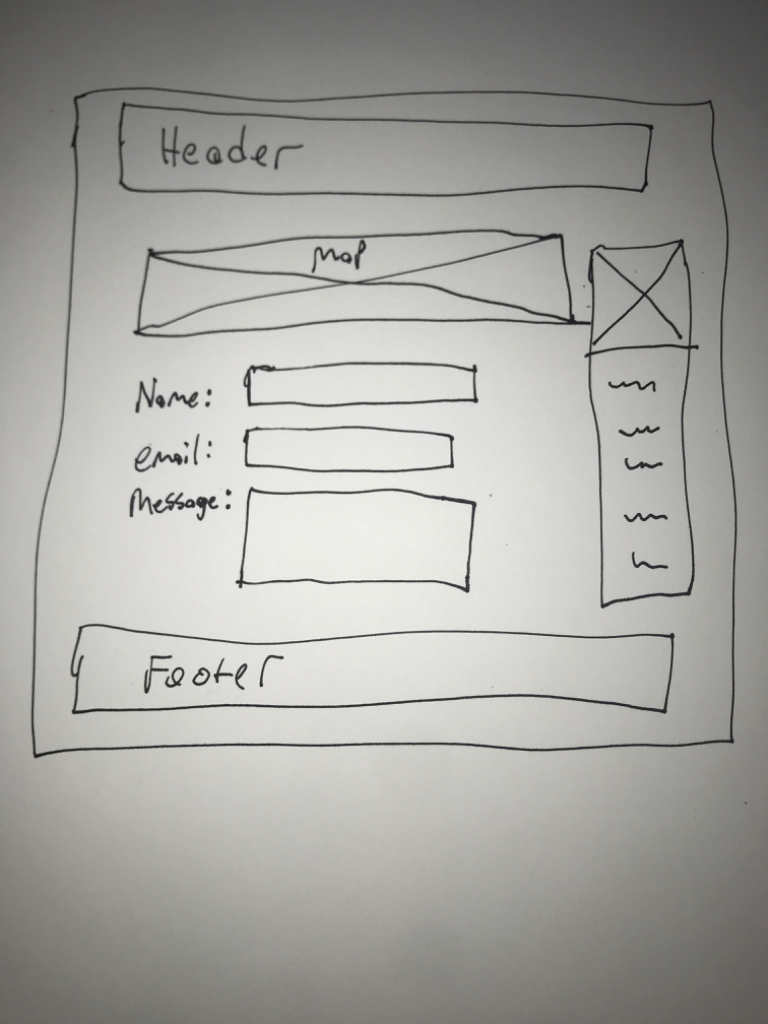 Header
Map
Name:
email:
Message:
Footer